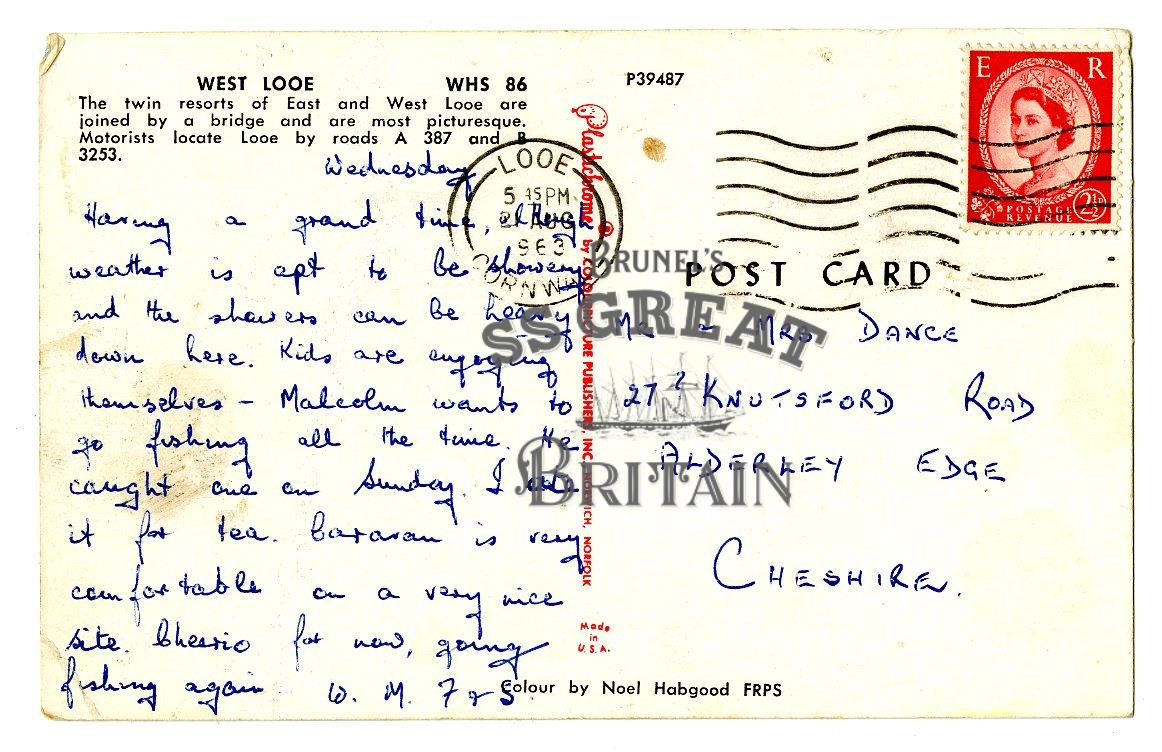 WEST LOOE WHS 86
The twin resorts of East and West Looe are
joined by a bridge and are most picturesque.
Motorists locate Looe by roads A 387 and B
3253.
Wednesday
Having a grand time, though
weather is apt to be showery
and the showers can be heavy
down here. Kids are enjoying
themselves – Malcolm wants to
go fishing all the time. He
caught one on Sunday. I ate
it for tea. Caravan is very
comfortable on a very nice
site. Cheerio for now, going
fishing again W. M. F & S.
P39487
LOOE
5 45 PM
21 AUG
963
CORNWALL
E R
POSTAGE
REVENUE
2½D
Plastichrome ® by COLOURPICTURE PUBLISHERS, INC. NORFOLK
Made
in
U.S.A.
POST CARD
Mr & Mrs DANCE
27 KNUTSFORD ROAD
ALDERLEY EDGE
CHESHIRE.
Colour by Noel Habgood FRPS
BRUNEL'S
SS GREAT
BRITAIN